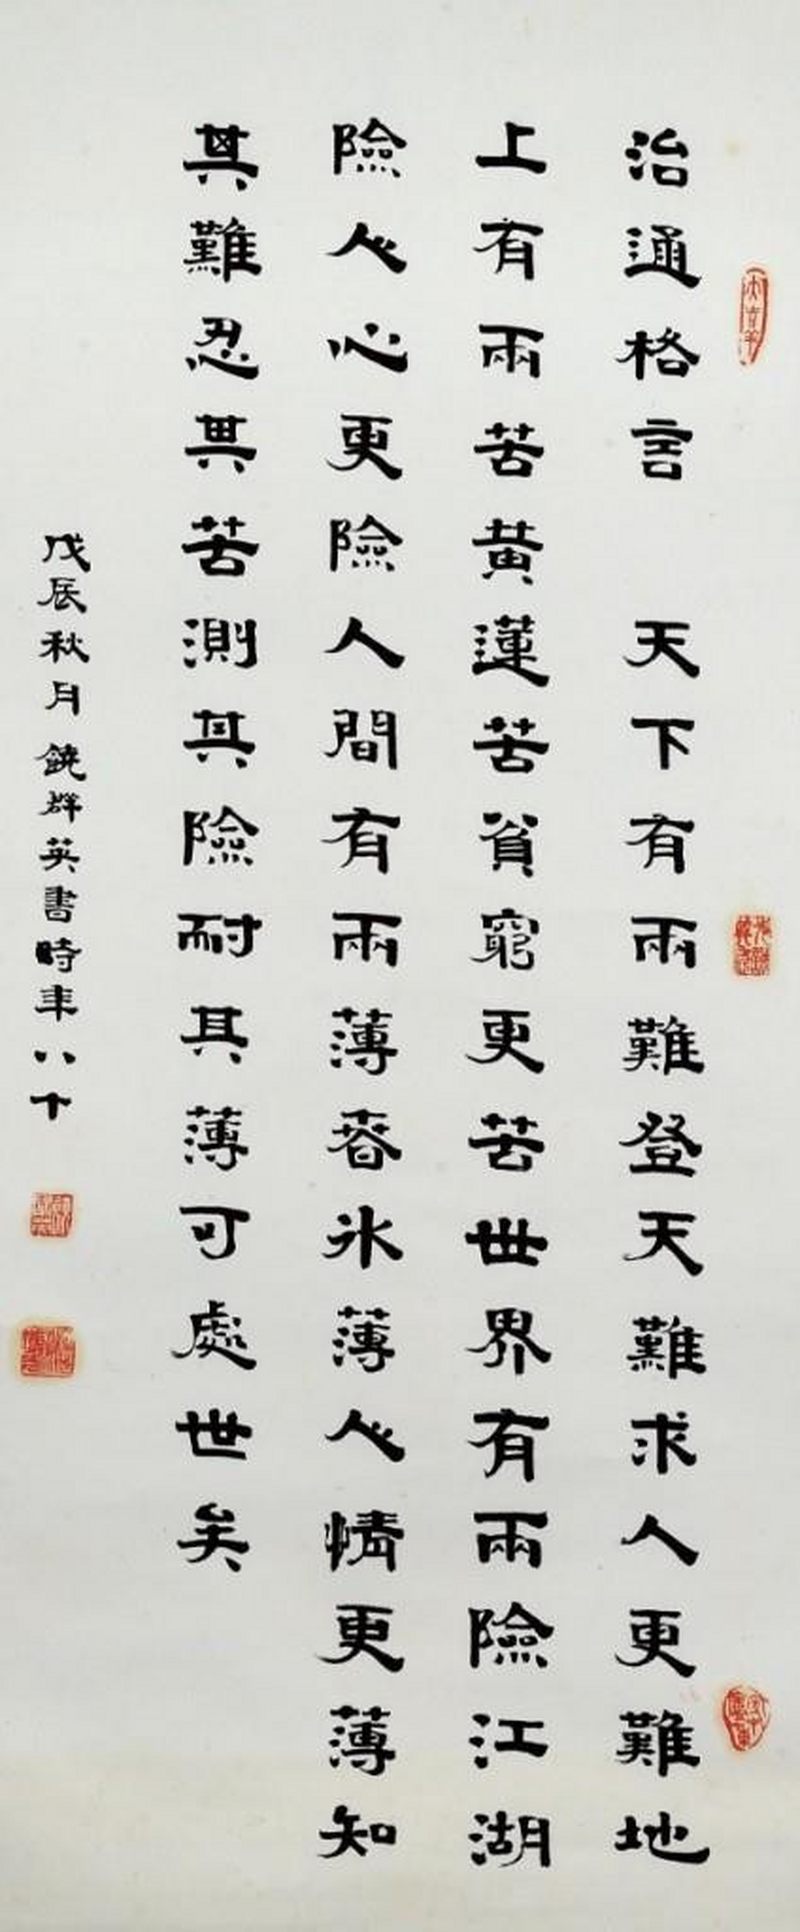 治通格言　天下有兩難登天難求人更難地
上有兩苦黄蓮苦貧窮更苦世界有兩險江湖
險人心更險人間有兩薄春氷薄人情更薄知
其難忍其苦測其險耐其薄可處世矣
戊辰秋月饒群英書時年八十